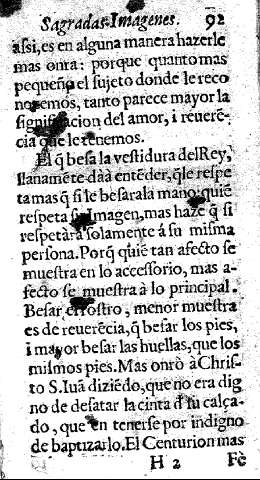 Sagradas Imagenes. 92
assi, es en alguna manera hazerle
mas onra: porque quanto mas
pequeño el sujeto donde le reco
nocemos, tanto parece mayor la
significacion del amor, i reuerē-
cia que le tenemos.
El q̃ besa la vestidura del Rey,
llanamēte da à entēder, q̃ le respe
ta mas q̃ si le besara la mano: quiē
respeta su Imagen, mas haze q̃ si
respetàra solamente á su misma
persona. Porq̃ quiē tan afecto se
muestra en lo accessorio, mas a-
fecto se muestra à lo principal.
Besar el rostro, menor muestra
es de reuerēcia, q̃ besar los pies,
i mayor besar las huellas, que los
mismos pies. Mas onrò à Chris-
to S. Iuā diziēdo, que no era dig
no de desatar la cinta d̃ su calça-
do, que en tenerse por indigno
de baptizarlo. El Centurion mas
H 2 Fè